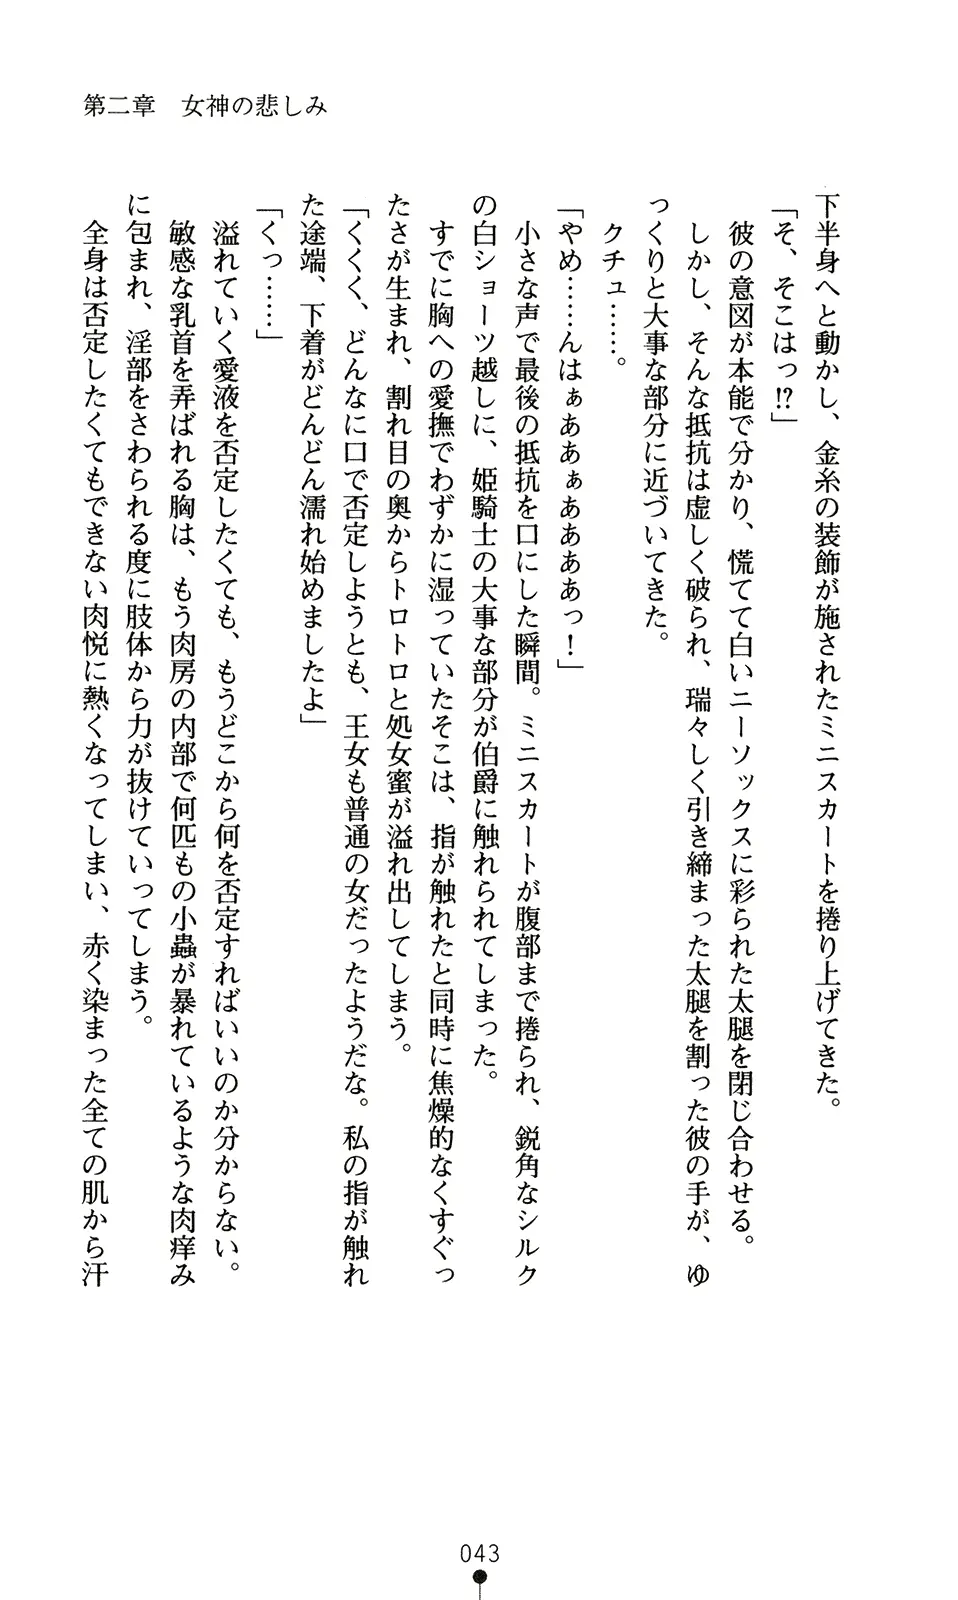 第二章　女神の悲しみ
下半身へと動かし、金糸の装飾が施されたミニスカートを捲り上げてきた。
「そ、そこはっ!?」
　彼の意図が本能で分かり、慌てて白いニーソックスに彩られた太腿を閉じ合わせる。
　しかし、そんな抵抗は虚しく破られ、瑞々しく引き締まった太腿を割った彼の手が、ゆ
っくりと大事な部分に近づいてきた。
　クチュ……。
「やめ……んはぁああぁああああっ！」
　小さな声で最後の抵抗を口にした瞬間。ミニスカートが腹部まで捲られ、鋭角なシルク
の白ショーツ越しに、姫騎士の大事な部分が伯爵に触れられてしまった。
　すでに胸への愛撫でわずかに湿っていたそこは、指が触れたと同時に焦燥的なくすぐっ
たさが生まれ、割れ目の奥からトロトロと処女蜜が溢れ出してしまう。
「くくく、どんなに口で否定しようとも、王女も普通の女だったようだな。私の指が触れ
た途端、下着がどんどん濡れ始めましたよ」
「くっ……」
　溢れていく愛液を否定したくても、もうどこから何を否定すればいいのか分からない。
　敏感な乳首を弄ばれる胸は、もう肉房の内部で何匹もの小蟲が暴れているような肉痒み
に包まれ、淫部をさわられる度に肢体から力が抜けていってしまう。
　全身は否定したくてもできない肉悦に熱くなってしまい、赤く染まった全ての肌から汗
043